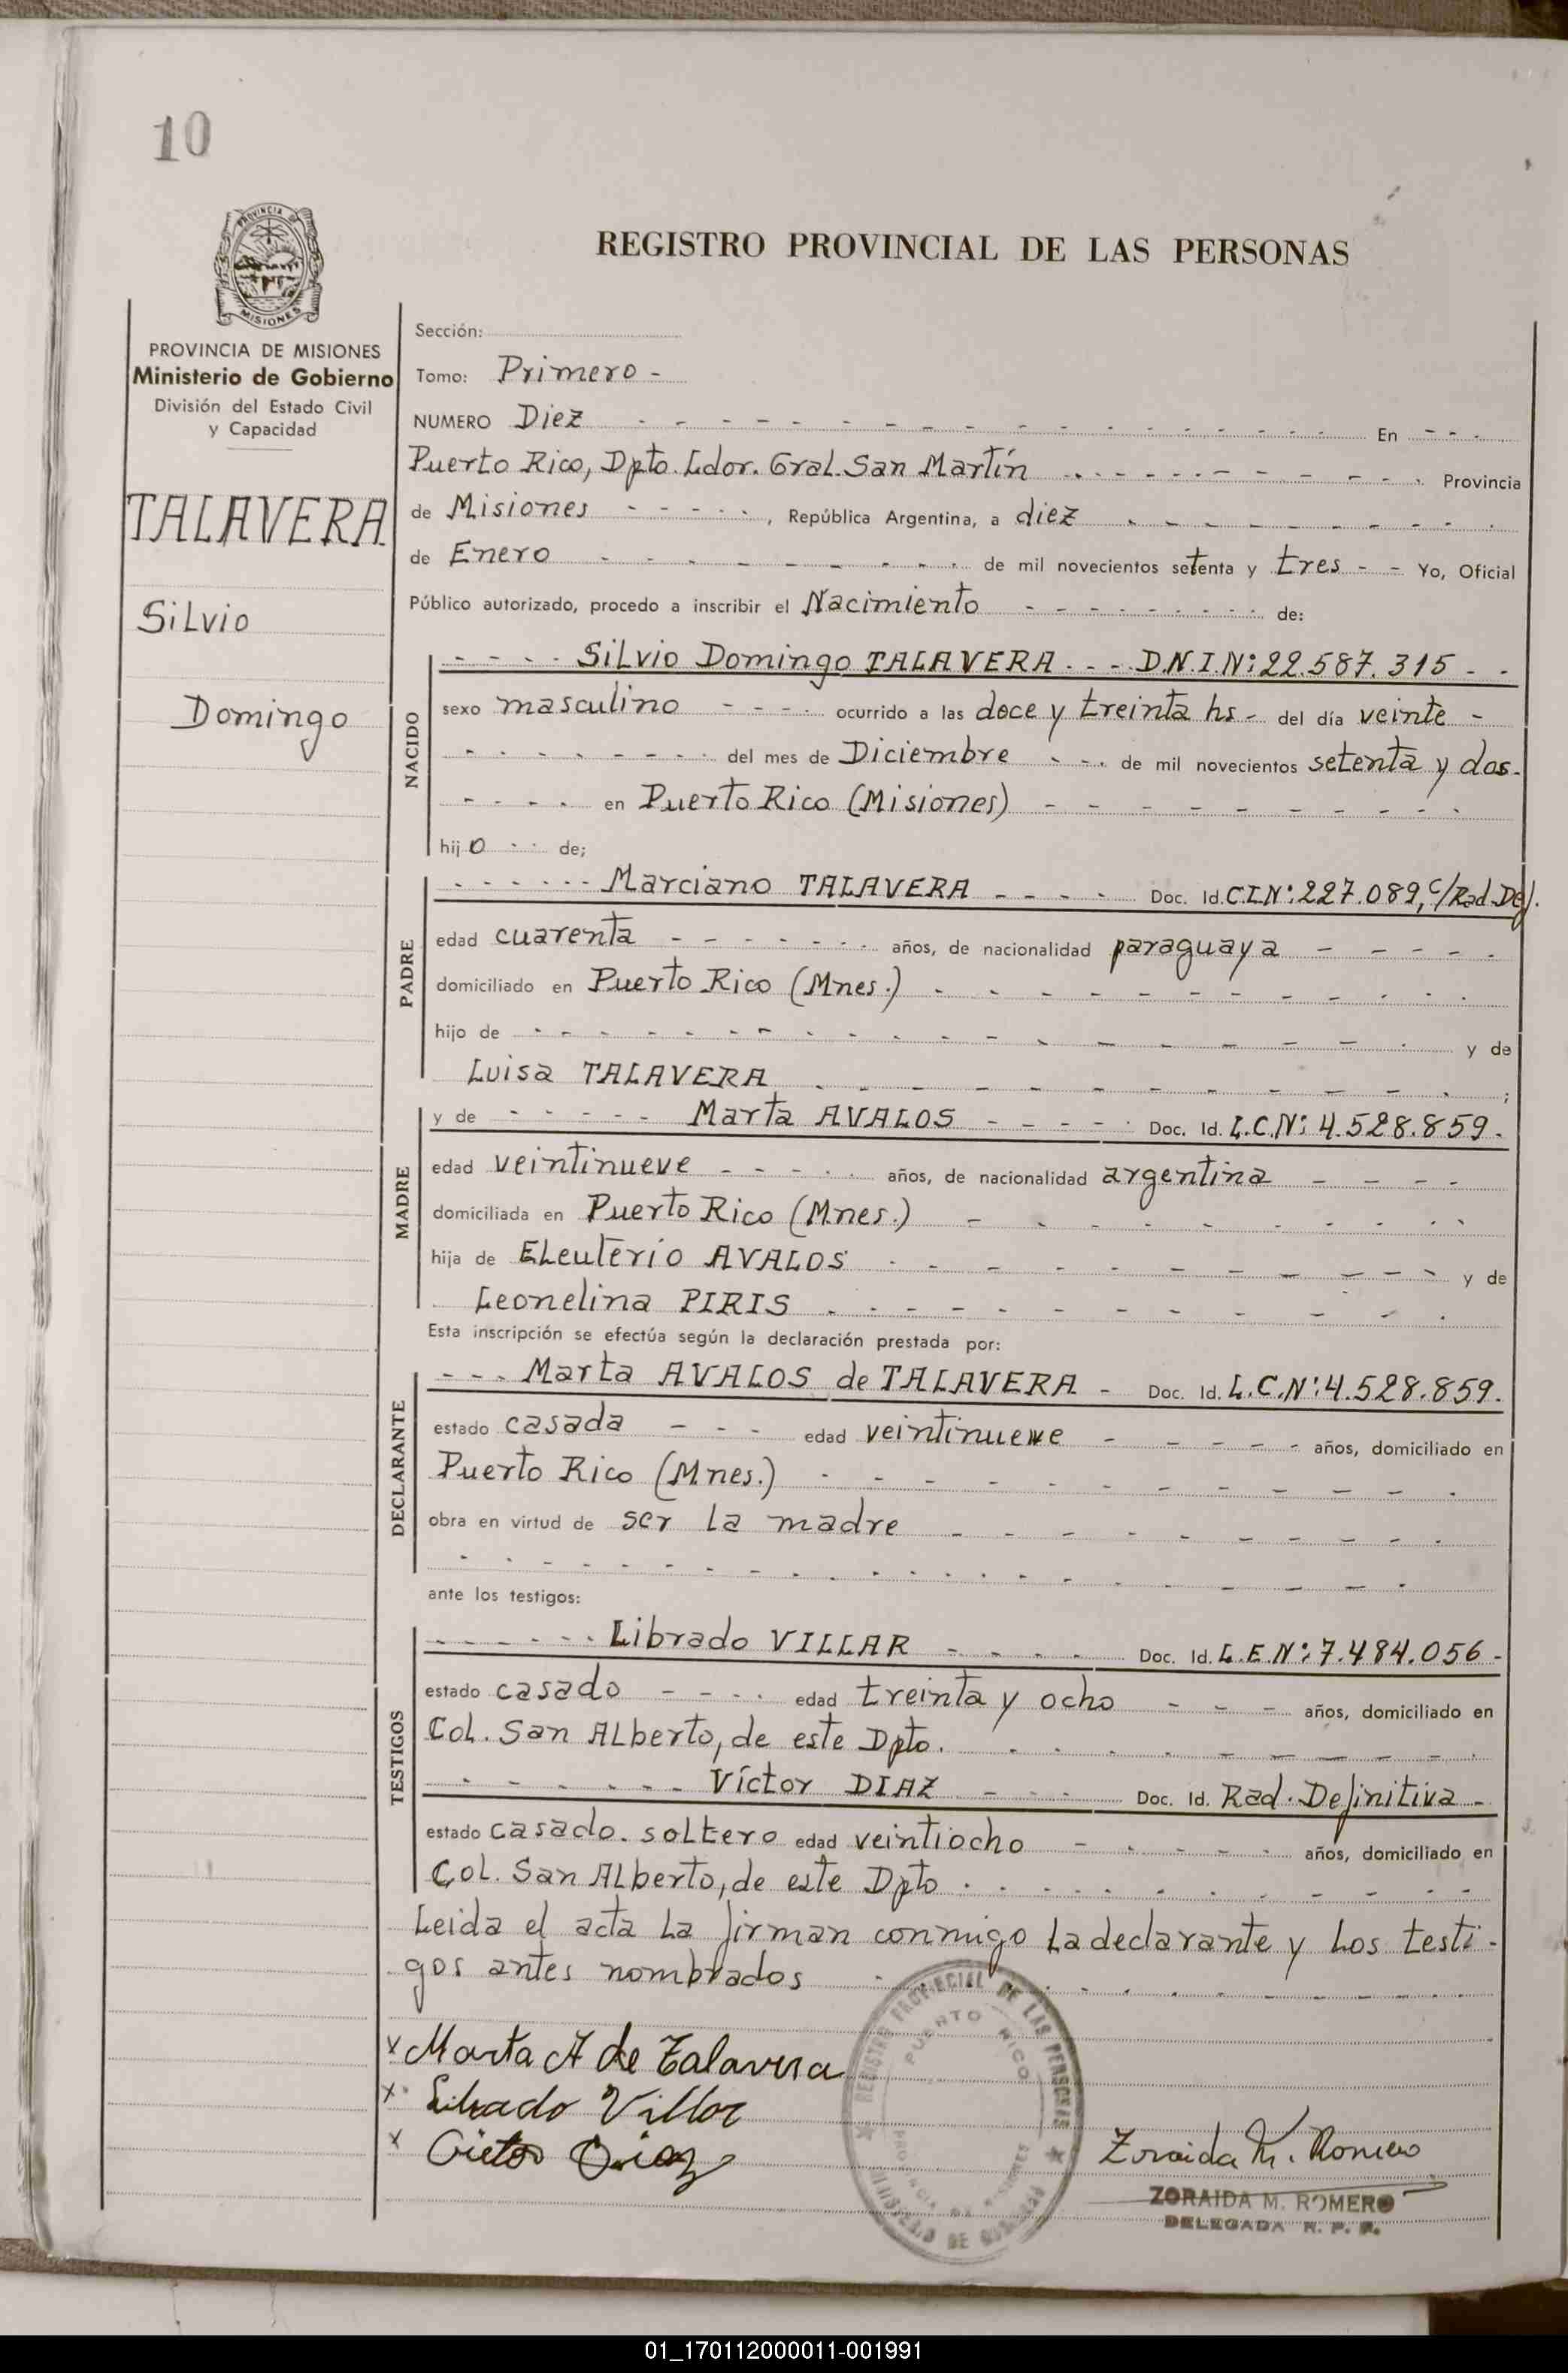 10
PROVINCIA DE MISIONES
REGISTRO PROVINCIAL DE LAS PERSONAS
PROVINCIA DE MISIONES
Ministerio de Gobierno
División del Estado Civil
y Capacidad
TALAVERA
Silvio
Domingo
Sección:
Tomo: Primero -
NUMERO Diez En
Puerto Rico, Dpto. Ldor. Gral. San Martín Provincia
de Misiones , República Argentina, a diez
de Enero de mil novecientos setenta y tres - - Yo, Oficial
Público autorizado, procedo a inscribir el Nacimiento de:
NACIDO
Silvio Domingo TALAVERA - - - D.N.I.Nº: 22.587.315 - -
sexo masculino ocurrido a las doce y treinta hs - del día veinte -
del mes de Diciembre de mil novecientos setenta y dos -
en Puerto Rico (Misiones)
hijo de;
PADRE
Marciano TALAVERA Doc. Id. C.I.Nº: 227.089, c/Rad. Def.
edad cuarenta años, de nacionalidad paraguaya
domiciliado en Puerto Rico (Mnes.)
hijo de y de
Luisa TALAVERA ;
MADRE
y de Marta AVALOS Doc. Id. L.C.Nº: 4.528.859.
edad veintinueve años, de nacionalidad argentina
domiciliada en Puerto Rico (Mnes.)
hija de Eleuterio AVALOS y de
Leonelina PIRIS
Esta inscripción se efectúa según la declaración prestada por:
DECLARANTE
Marta AVALOS de TALAVERA - Doc. Id. L.C.Nº: 4.528.859.
estado casada edad veintinueve años, domiciliado en
Puerto Rico (Mnes.)
obra en virtud de ser la madre
ante los testigos:
TESTIGOS
Librado VILLAR Doc. Id. L.E.Nº: 7.484.056 -
estado casado edad treinta y ocho años, domiciliado en
Col. San Alberto, de este Dpto.
Víctor DIAZ Doc. Id. Rad. Definitiva -
estado casado. soltero edad veintiocho años, domiciliado en
Col. San Alberto, de este Dpto
Leida el acta la firman conmigo la declarante y los testi-
gos antes nombrados
x Marta A de Talavera
x Librado Villar
x Victor Diaz
REGISTRO PROVINCIAL DE LAS PERSONAS
PUERTO RICO
PROVINCIA DE MISIONES
MINISTERIO DE GOBIERNO
Zoraida M. Romero
ZORAIDA M. ROMERO
DELEGADA R. P. P.
01_170112000011-001991